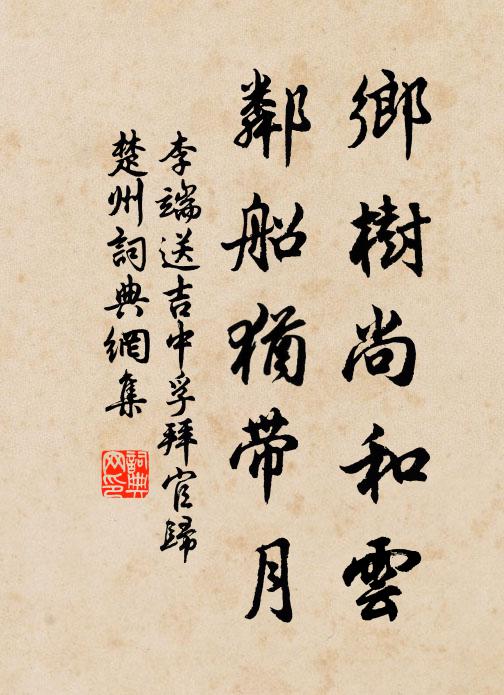 鄉樹尚和雲
鄰船猶帶月
李端送吉中孚拜官歸
楚州詞典網集
詞典網印